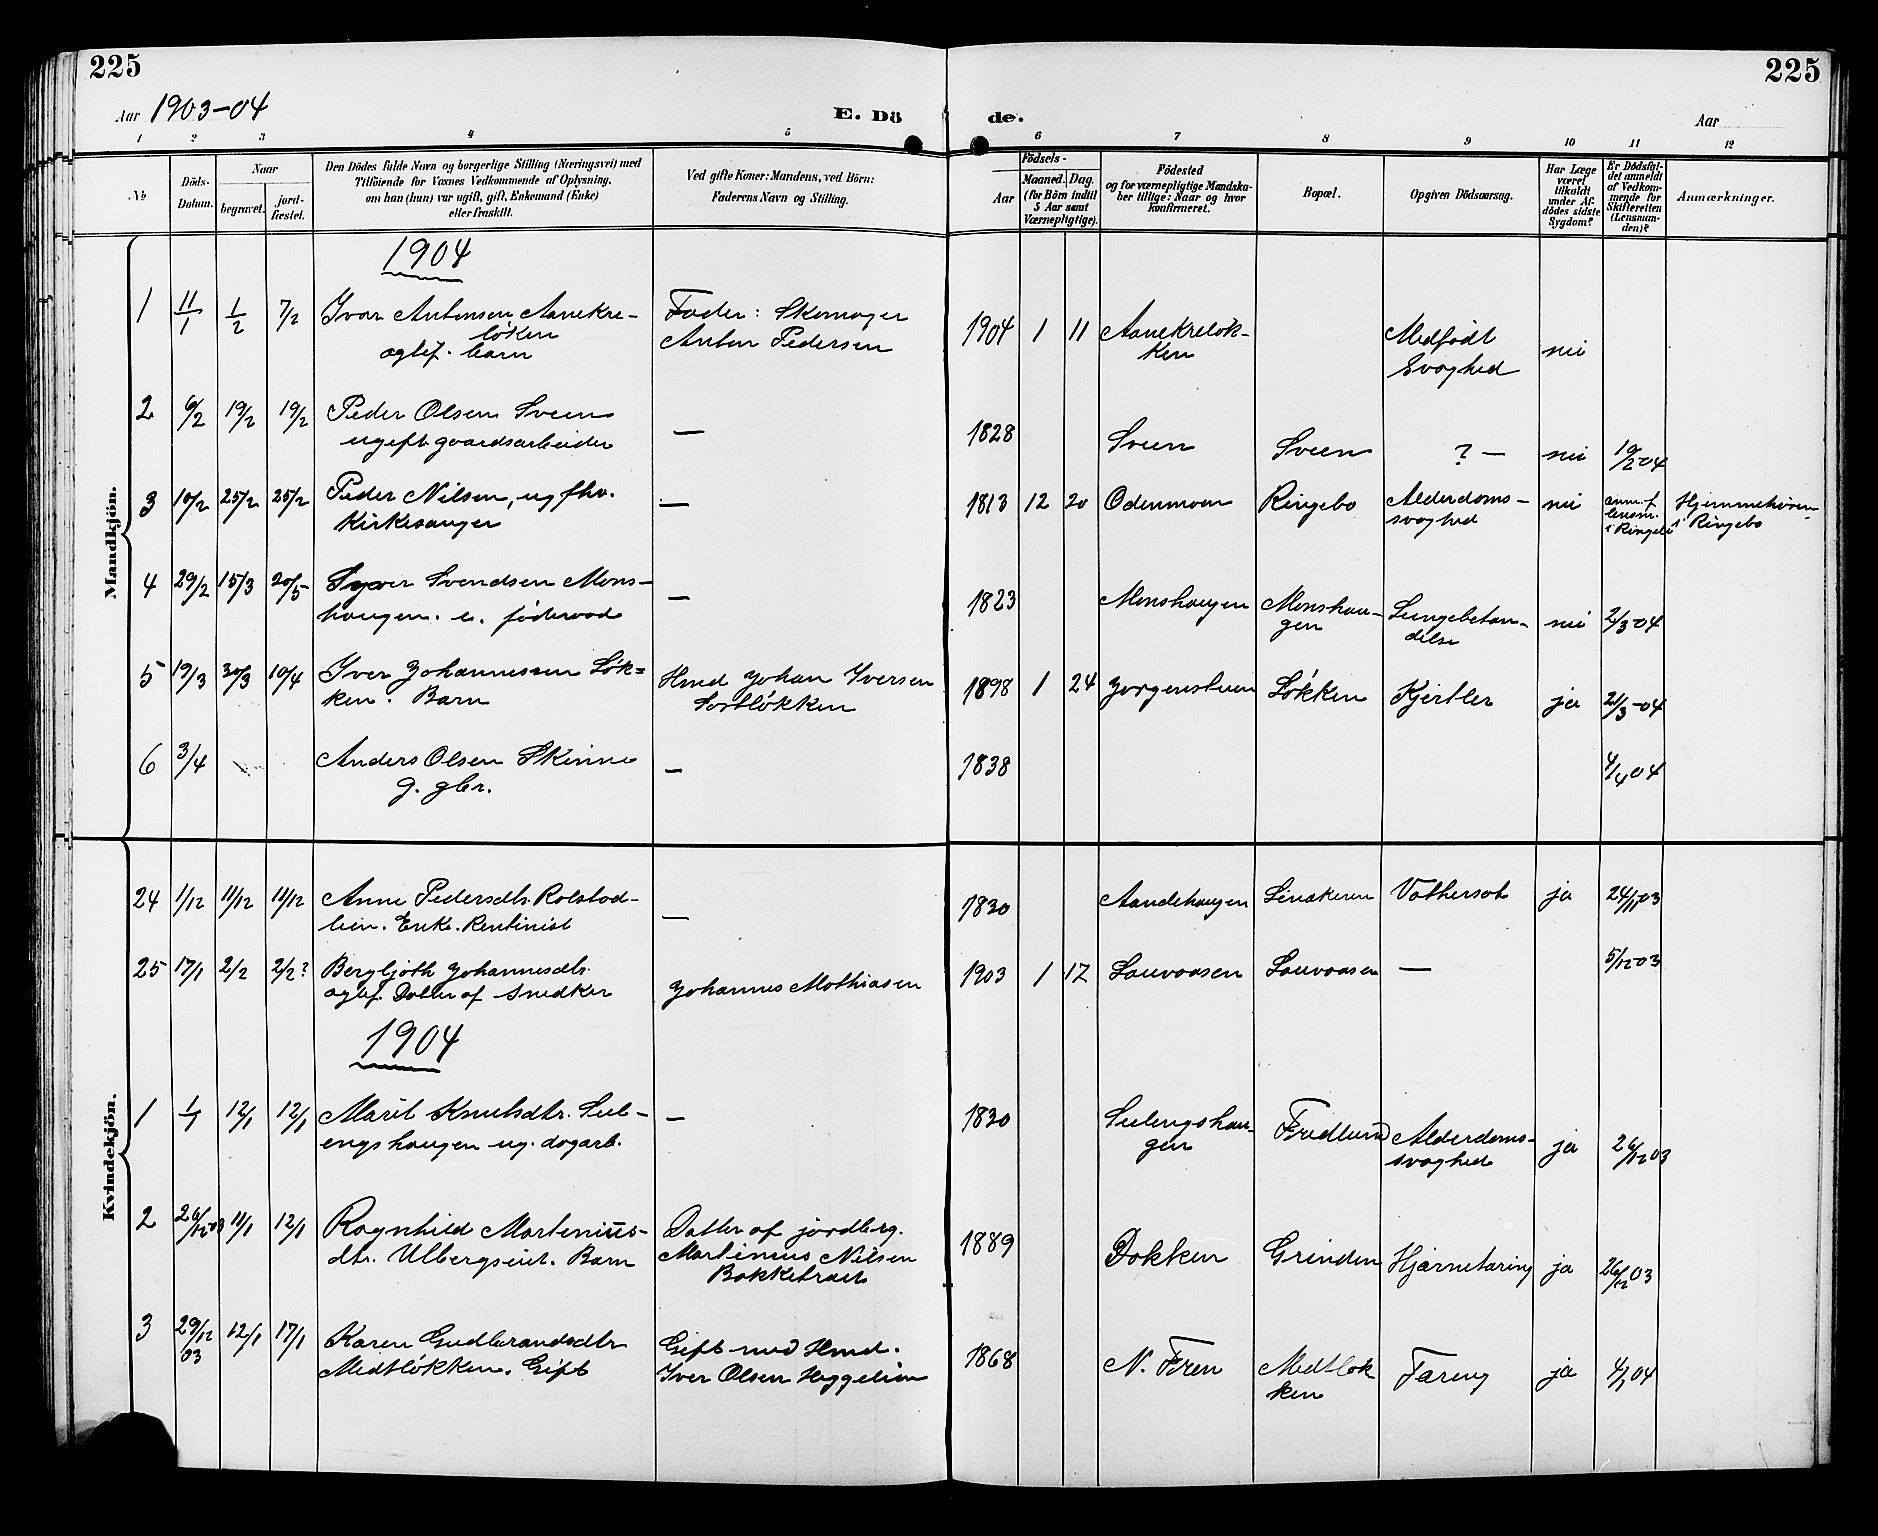 225
225
Aar 1903-04
E. Dö
de.
Aar
1 2 3 4 5 6 7 8 9 10 11 12
No
Döds-Datum.
Naar
begravet.
jord-fæstet.
Den Dödes fulde Navn og borgerlige Stilling (Næringsvei) med
Tilföiende for Voxnes Vedkommende af Oplysning,
om han (hun) var ugift, gift, Enkemand (Enke)
eller fraskilt.
Ved gifte Koner: Mandens, ved Börn:
Faderens Navn og Stilling.
Födsels-
Aar
Maaned.
Dag.
(for Börn indtil
5 Aar samt
Værnepligtige).
Födested
og for værnepligtige Mandska-
ber tillige: Naar og hvor
Konfirmeret.
Bopæl.
Opgiven Dödsaarsag.
Har Læge
været
tilkaldt
under Af-
dödes sidste
Sygdom?
Er Dödsfal-
det anmeldt
af Vedkom-
mende for
Skifteretten
(Lensman-
den)?
Anmærkninger.
Mandkjön.
1904
1 11/1 1/2 7/2 Ivar Antonsen Aanekre-
løken
ægtef. barn
Fader: Skomager
Anton Pedersen
1904 1 11 Aanekreløk-
ken
Medfødt
Svaghed
nei
2 6/2 19/2 19/2 Peder Olsen Sveen
ugift gaardsarbeider
—
1828 Sveen Sveen ? — nei 19/2 04
3 10/2 25/2 25/2 Peder Nilsen, ug fhv.
Kirkesanger
—
1813 12 20 Odenmoen Ringebo Alderdoms-
svaghed
nei
anm. f.
lensm.
i Ringebo
Hjemmehören-
i Ringebo
4 29/2 15/3 20/5 Syver Svendsen Mons-
haugen. e. föderaad
—
1823 Monshaugen Monshau-
gen
Lungebetæn-
delse
nei 2/3-04
5 19/3 30/3 10/4 Iver Johannessen Løk=
ken. Barn
Hmd Johan Iversen
Sortløkken
1898 1 24 Jorgenstuen Løkken Kjertler ja 21/3-04
6 3/4 Anders Olsen Skinne
g. gbr.
—
1838 4/4 04
Kvindekjön.
24 1/12 11/12 11/12 Anne Pedersdtr. Rolstad-
lien. Enke. Rentinist
—
1830 Aandehaugen Lindkeren Vattersot ja 24/11 03
25 17/1 2/2 2/2? Bergljoth Johannesdtr.
ægtef. Datter af Snedker
Johannes Mathiasen
1903 1 17 Lauvaasen Lauvaasen — 5/12-03
1904
1 1/1 12/1 12/1 Marit Knutsdtr. Sul-
engshaugen ug. dagarb.
—
1830 Sulengshau-
gen
Fredlund Alderdoms-
svaghed
ja 26/12 03
2 26/12-03 11/1 12/1 Ragnhild Martenius-
dtr. Ulbergseiet. Barn
Datter af jordbrg.
Martinius Nilsen
Bakketræet
1889 Dokken Grinden Hjærnetæring ja 26/12 03
3 29/12 03 12/1 17/1 Karen Gudbrandsdtr
Medtløkken. Gift
Gift med Hmd.
Iver Olsen Heggelien
1868 N. Fren Medtløk
ken
Tæring ja 4/1 04